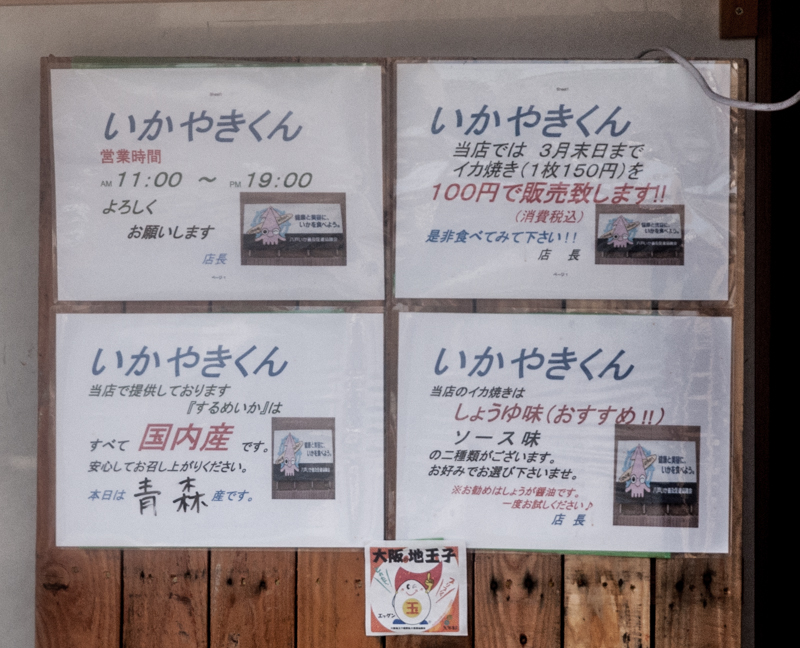 いかやきくん
営業時間
AM 11:00 ～ PM 19:00
よろしく
お願いします
店長
いかやきくん
当店では 3月末日まで
イカ焼き(1枚150円)を
100円で販売致します!!
(消費税込)
是非食べてみて下さい!!
店 長
いかやきくん
当店で提供しております
『するめいか』は
すべて 国内産 です。
安心してお召し上がりください。
本日は 青森 産です。
いかやきくん
当店のイカ焼きは
しょうゆ味(おすすめ!!)
ソース味
の二種類がございます。
お好みでお選び下さいませ。
※お勧めはしょうが醤油です。
一度お試しください♪
店 長
健康と美容に、
いかを食べよう。
大阪の地玉子
玉
エッケン